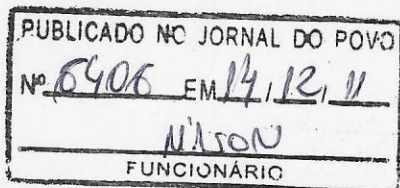 PUBLICADO NO JORNAL DO POVO
Nº 6406 EM 14, 12, 11
Nilson
FUNCIONÁRIO